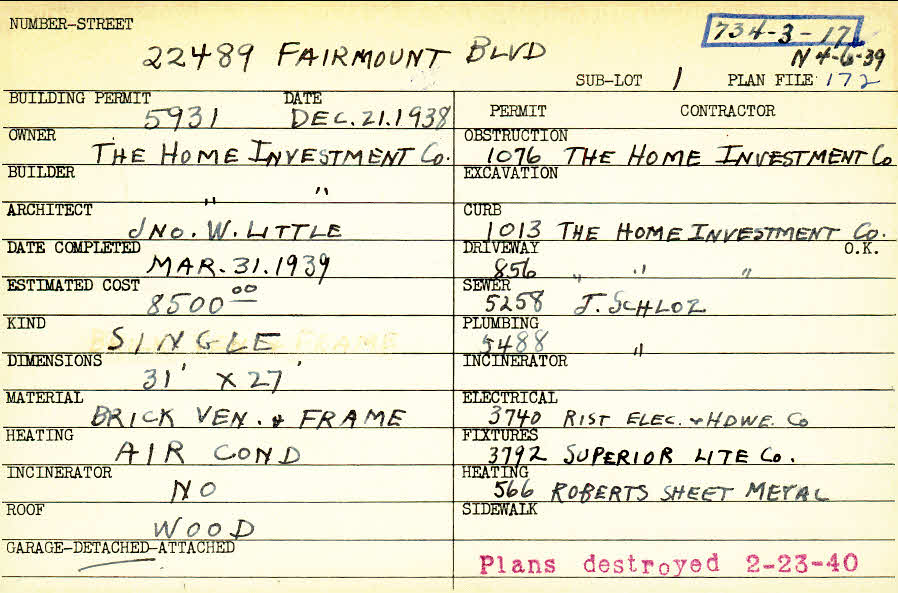 NUMBER-STREET
734-3-17
22489 FAIRMOUNT BLVD
N 4-6-39
SUB-LOT 1 PLAN FILE 172
BUILDING PERMIT DATE
5931 DEC.21.1938
PERMIT CONTRACTOR
OWNER
THE HOME INVESTMENT Co.
OBSTRUCTION
1076 THE HOME INVESTMENT Co
BUILDER
" "
EXCAVATION
ARCHITECT
JNO. W. LITTLE
CURB
1013 THE HOME INVESTMENT Co.
DATE COMPLETED
MAR. 31. 1939
DRIVEWAY O.K.
856 " " "
ESTIMATED COST
8500 00
SEWER
5258 J. SCHLOZ
KIND
SINGLE
PLUMBING
5488 "
DIMENSIONS
31' X 27'
INCINERATOR
MATERIAL
BRICK VEN. & FRAME
ELECTRICAL
3740 RIST ELEC. & HDWE. Co
HEATING
AIR COND
FIXTURES
3792 SUPERIOR LITE Co.
INCINERATOR
NO
HEATING
566 ROBERTS SHEET METAL
ROOF
WOOD
SIDEWALK
GARAGE-DETACHED-ATTACHED
Plans destroyed 2-23-40